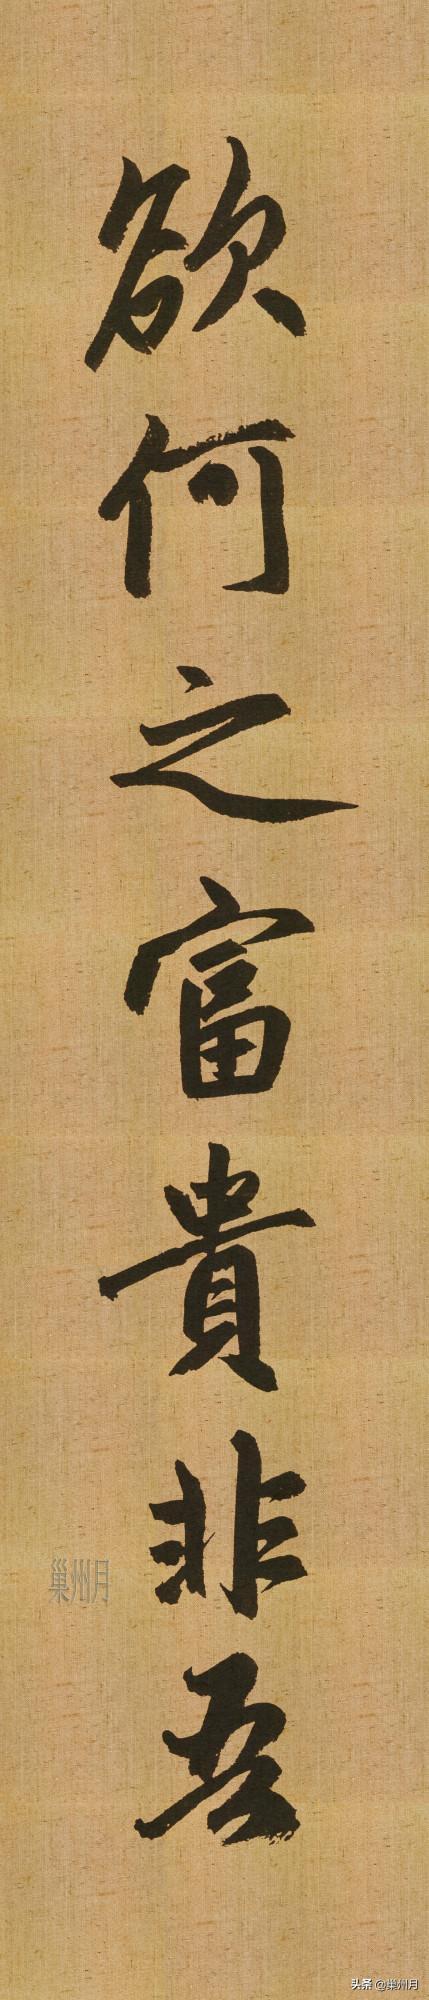 欲何之富貴非吾
巢州月
头条 @巢州月